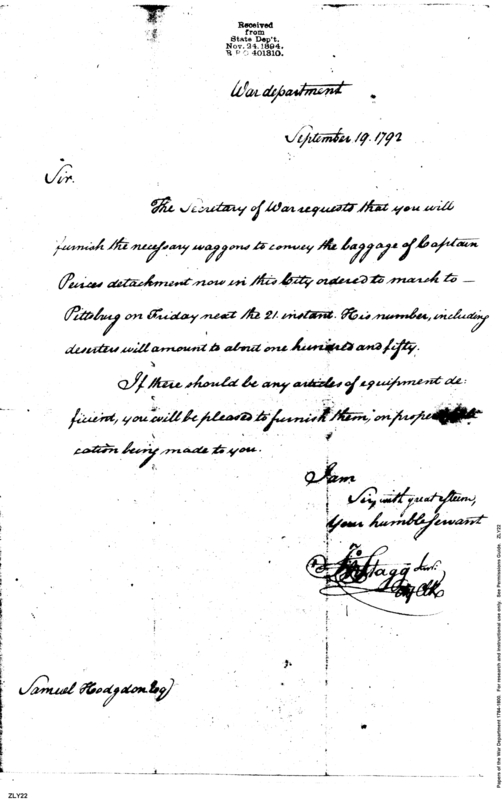 Received
from
State Dep't.
Nov. 24. 1894.
R P O 401310.
War department
September 19. 1792
Sir.
The Secretary of War requests that you will
furnish the necessary waggons to convey the baggage of Captain
Peirces detachment now in this City ordered to march to —
Pittsburg on Friday next the 21. instant. His number, including
deserters will amount to about one hundred and fifty.
If there should be any articles of equipment de:
ficient, you will be pleased to furnish them, on proper
cation being made to you.
I am
Sir, with great esteem,
Your humble servant
Jno Stagg Junr.
Clk
Samuel Hodgdon Esq
ZLY22
Papers of the War Department 1784-1800. For research and instructional use only. See Permissions Guide. ZLY22